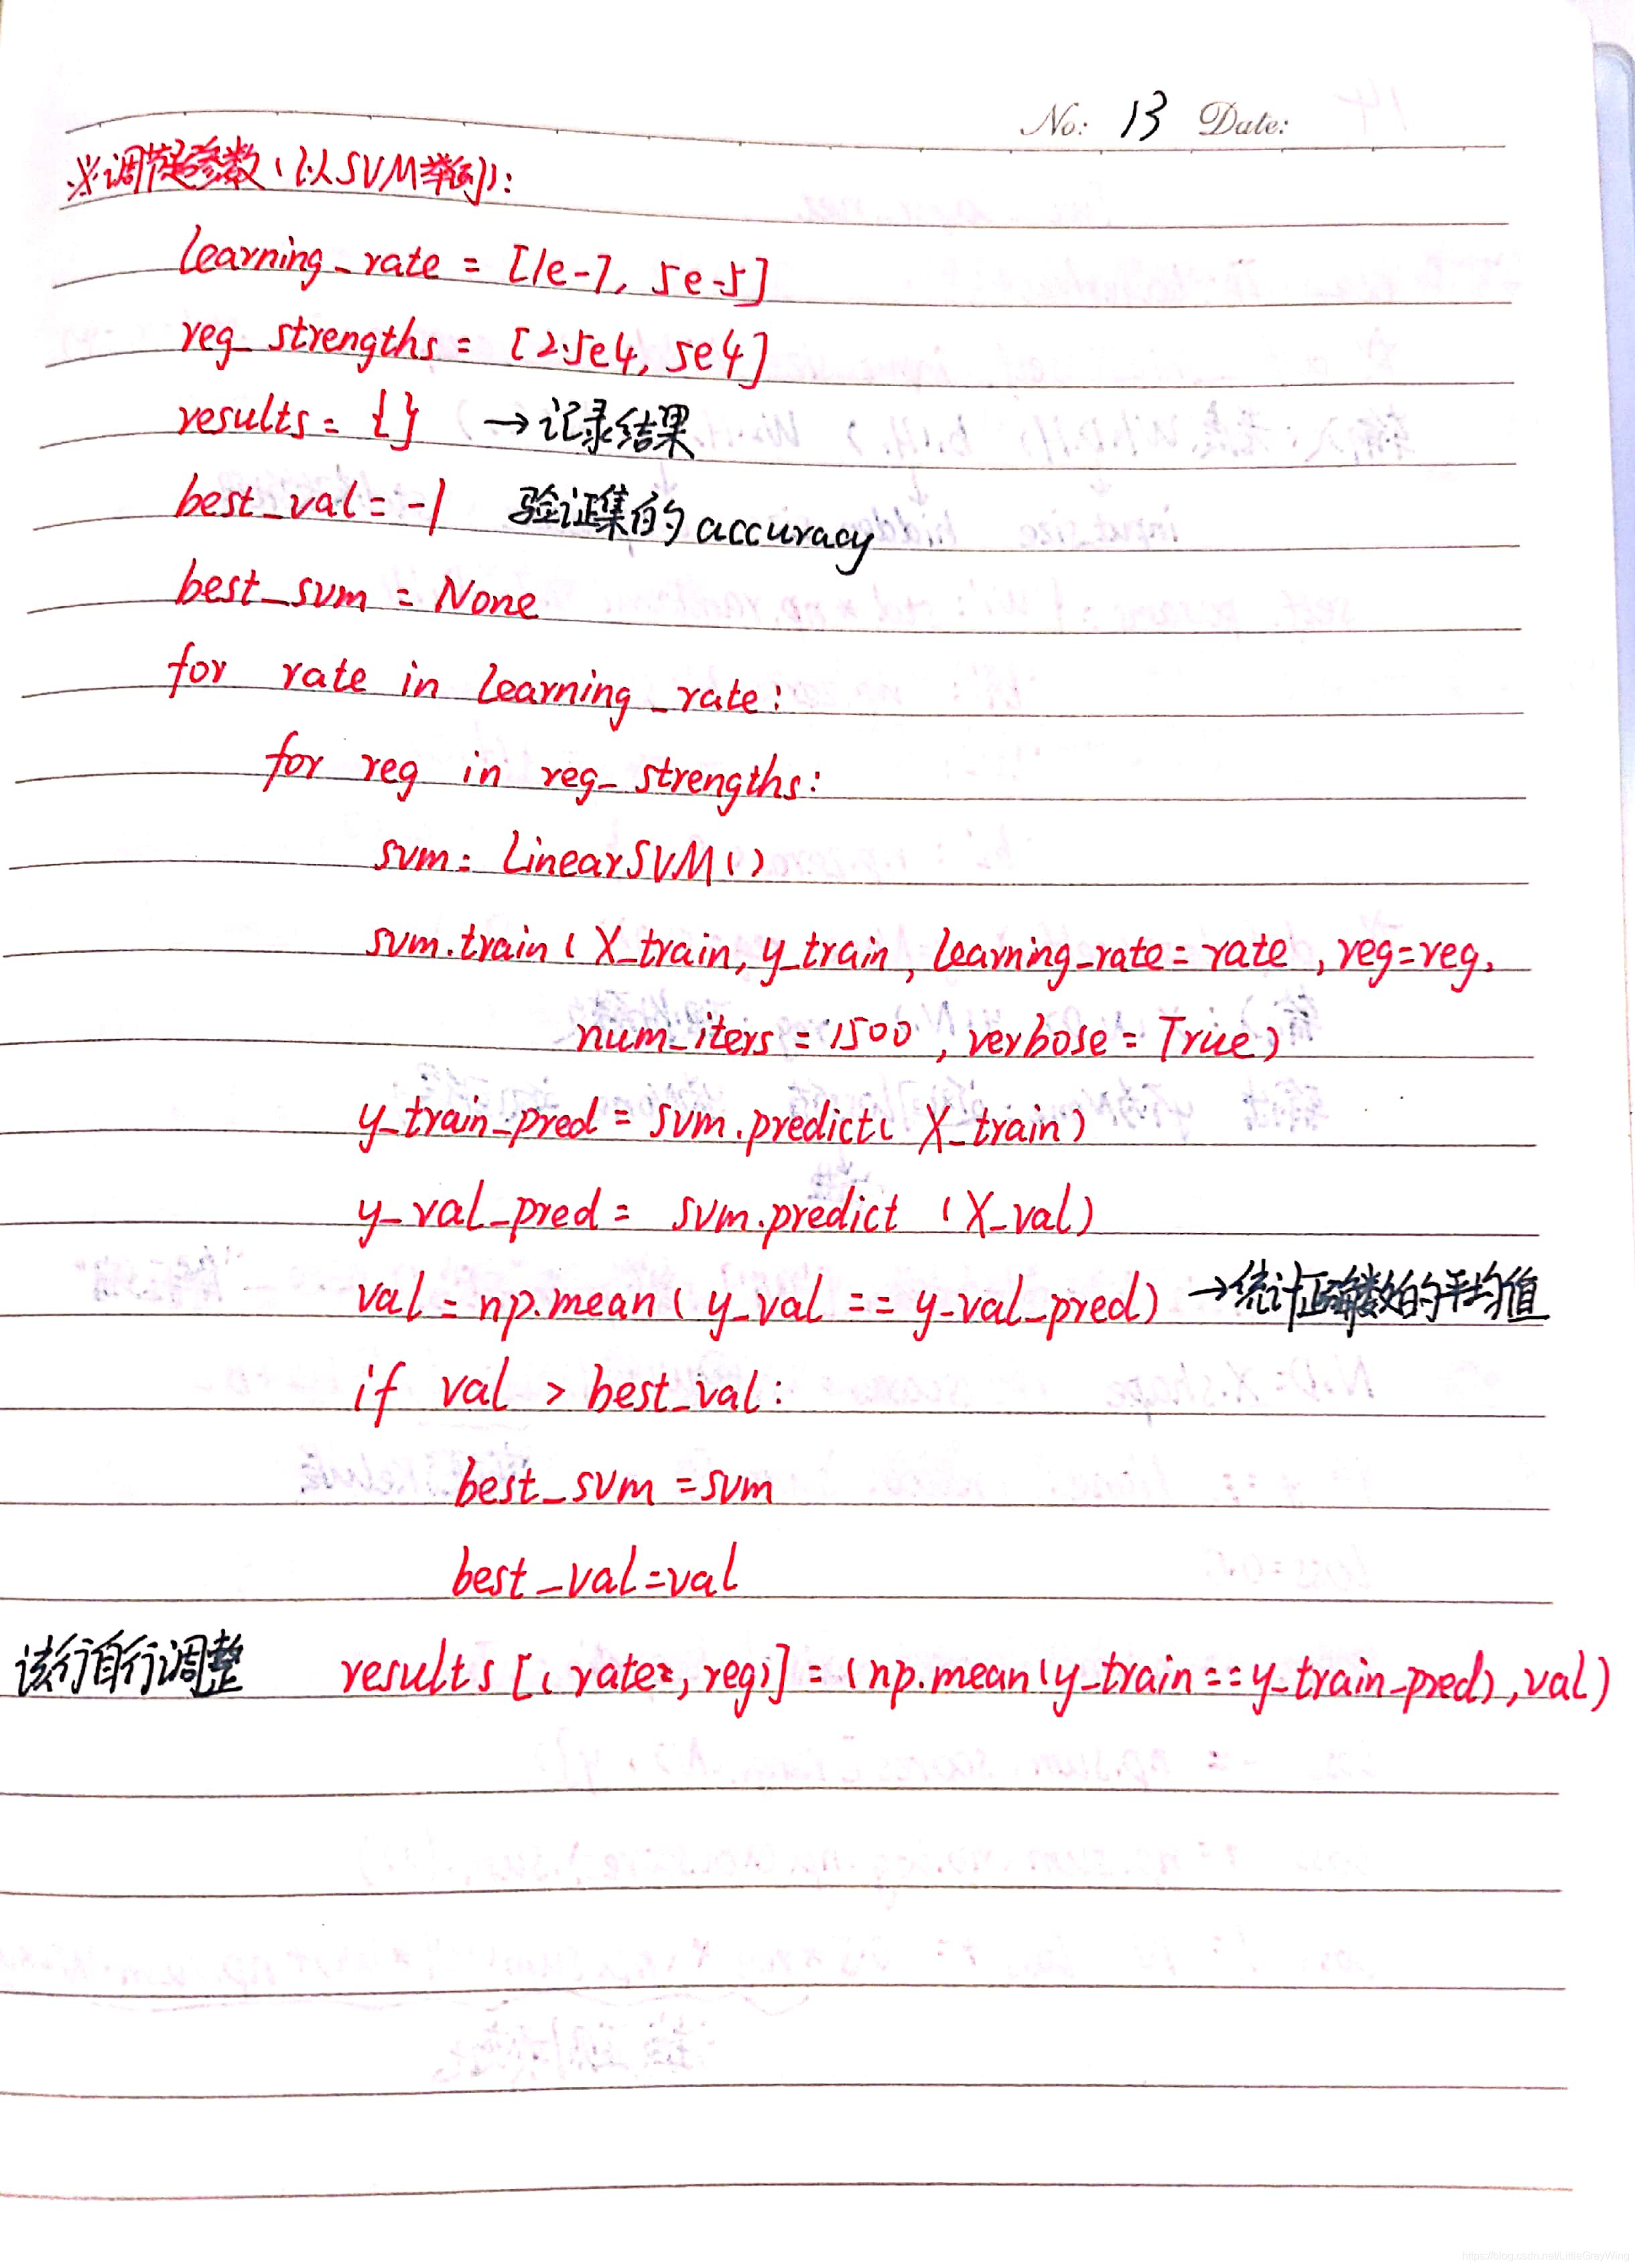 No: 13 Date:
※调节超参数(以SVM举例):
learning_rate = [1e-7, 5e-5]
reg_strengths = [2.5e4, 5e4]
results = {} →记录结果
best_val = -1 验证集的accuracy
best_svm = None
for rate in learning_rate:
for reg in reg_strengths:
svm = LinearSVM()
svm.train(X_train, y_train, learning_rate = rate, reg=reg,
num_iters = 1500, verbose = True)
y_train_pred = svm.predict(X_train)
y_val_pred = svm.predict(X_val)
val = np.mean(y_val == y_val_pred) →统计正确数始的平均值
if val > best_val:
best_svm = svm
best_val = val
该行自行调整 results[(rate, reg)] = (np.mean(y_train == y_train_pred), val)
https://blog.csdn.net/LittleGreyWing